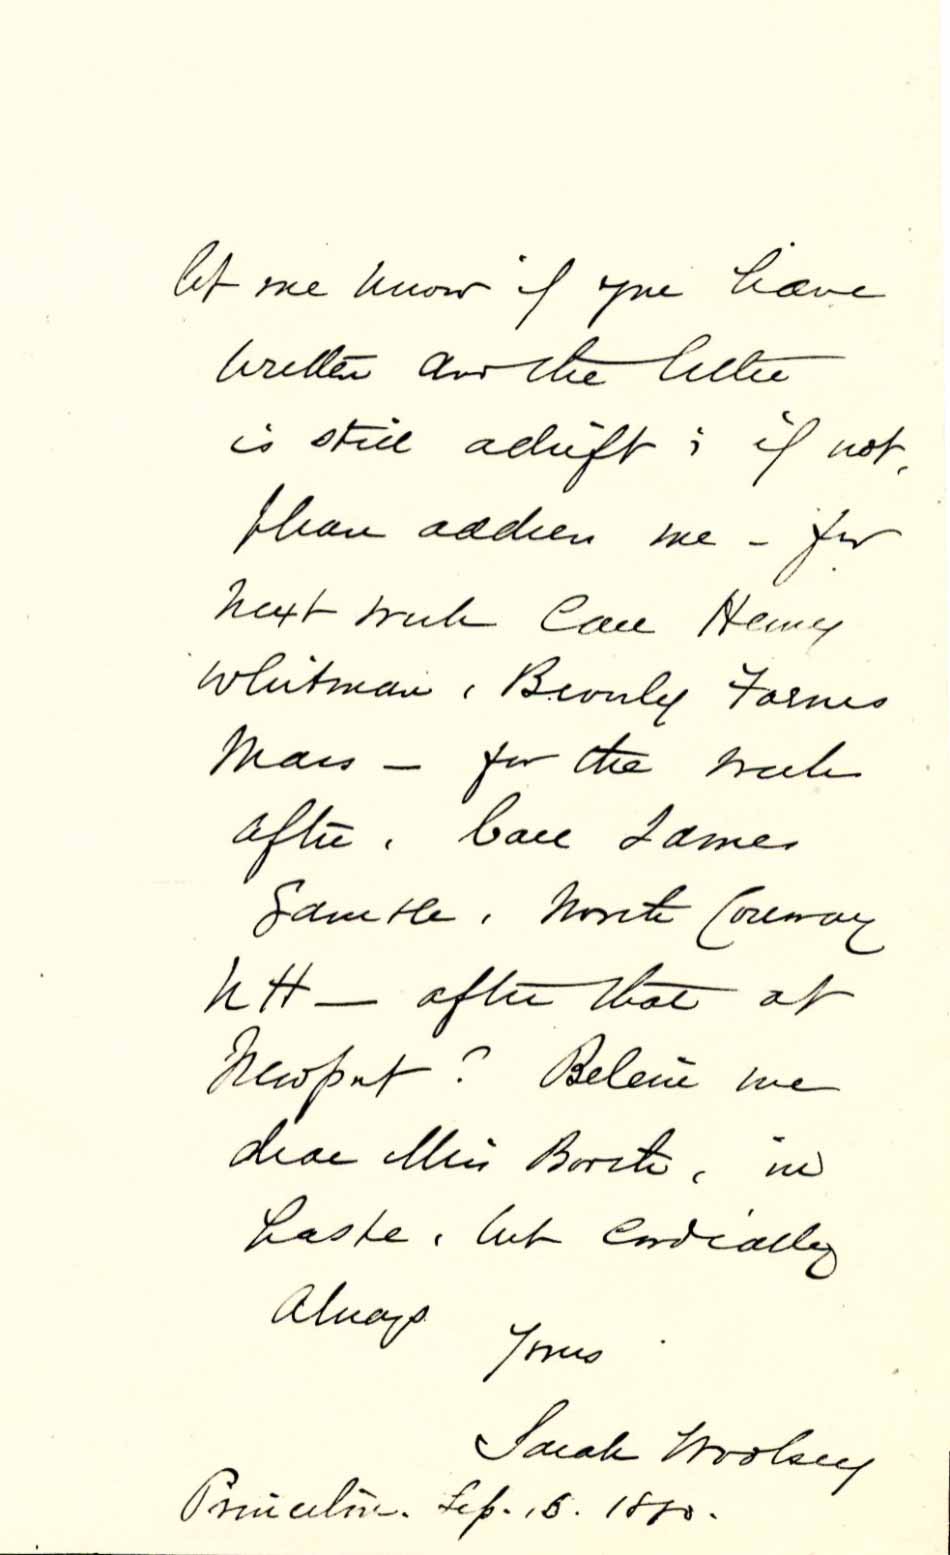 let me know if you have
written and the letter
is still adrift; if not,
please address me - for
next week Care Henry
Whitman, Beverly Farms
Mass - for the week
after, Care James
Gamble, North Conway
NH - after that at
Newport? Believe me
dear Miss Booth, in
haste, but cordially
always
Yours
Sarah Woolsey
Princeton. Sep. 15. 1880.